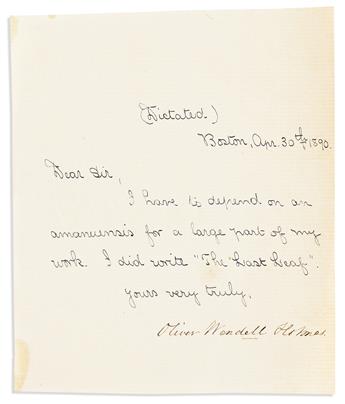 (Dictated.)
Boston, Apr. 30th 1890.
Dear Sir,
I have to depend on an
amanuensis for a large part of my
work. I did write "The Last Leaf".
Yours very truly,
Oliver Wendell Holmes.